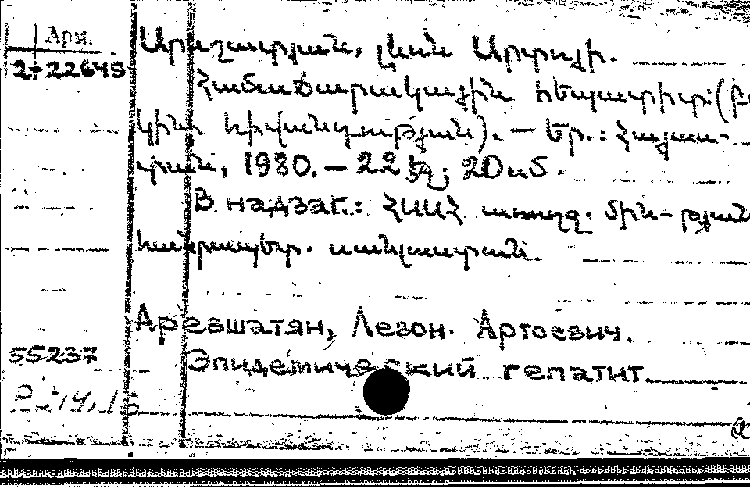 Арм.
2-22645
Արևշատյան, Լևոն Արտոյի.
Համաճարակային հեպատիտ:
կին հիվանդության). — Եր.: Հայաս-
տան, 1980. — 22 էջ; 20 սմ.
В надзаг.: ՀՍՍՀ առողջ. մին-թյան
հանրապետ. սանլուստան.
Аревшатян, Левон Артоевич.
55237 Эпидемический гепатит.